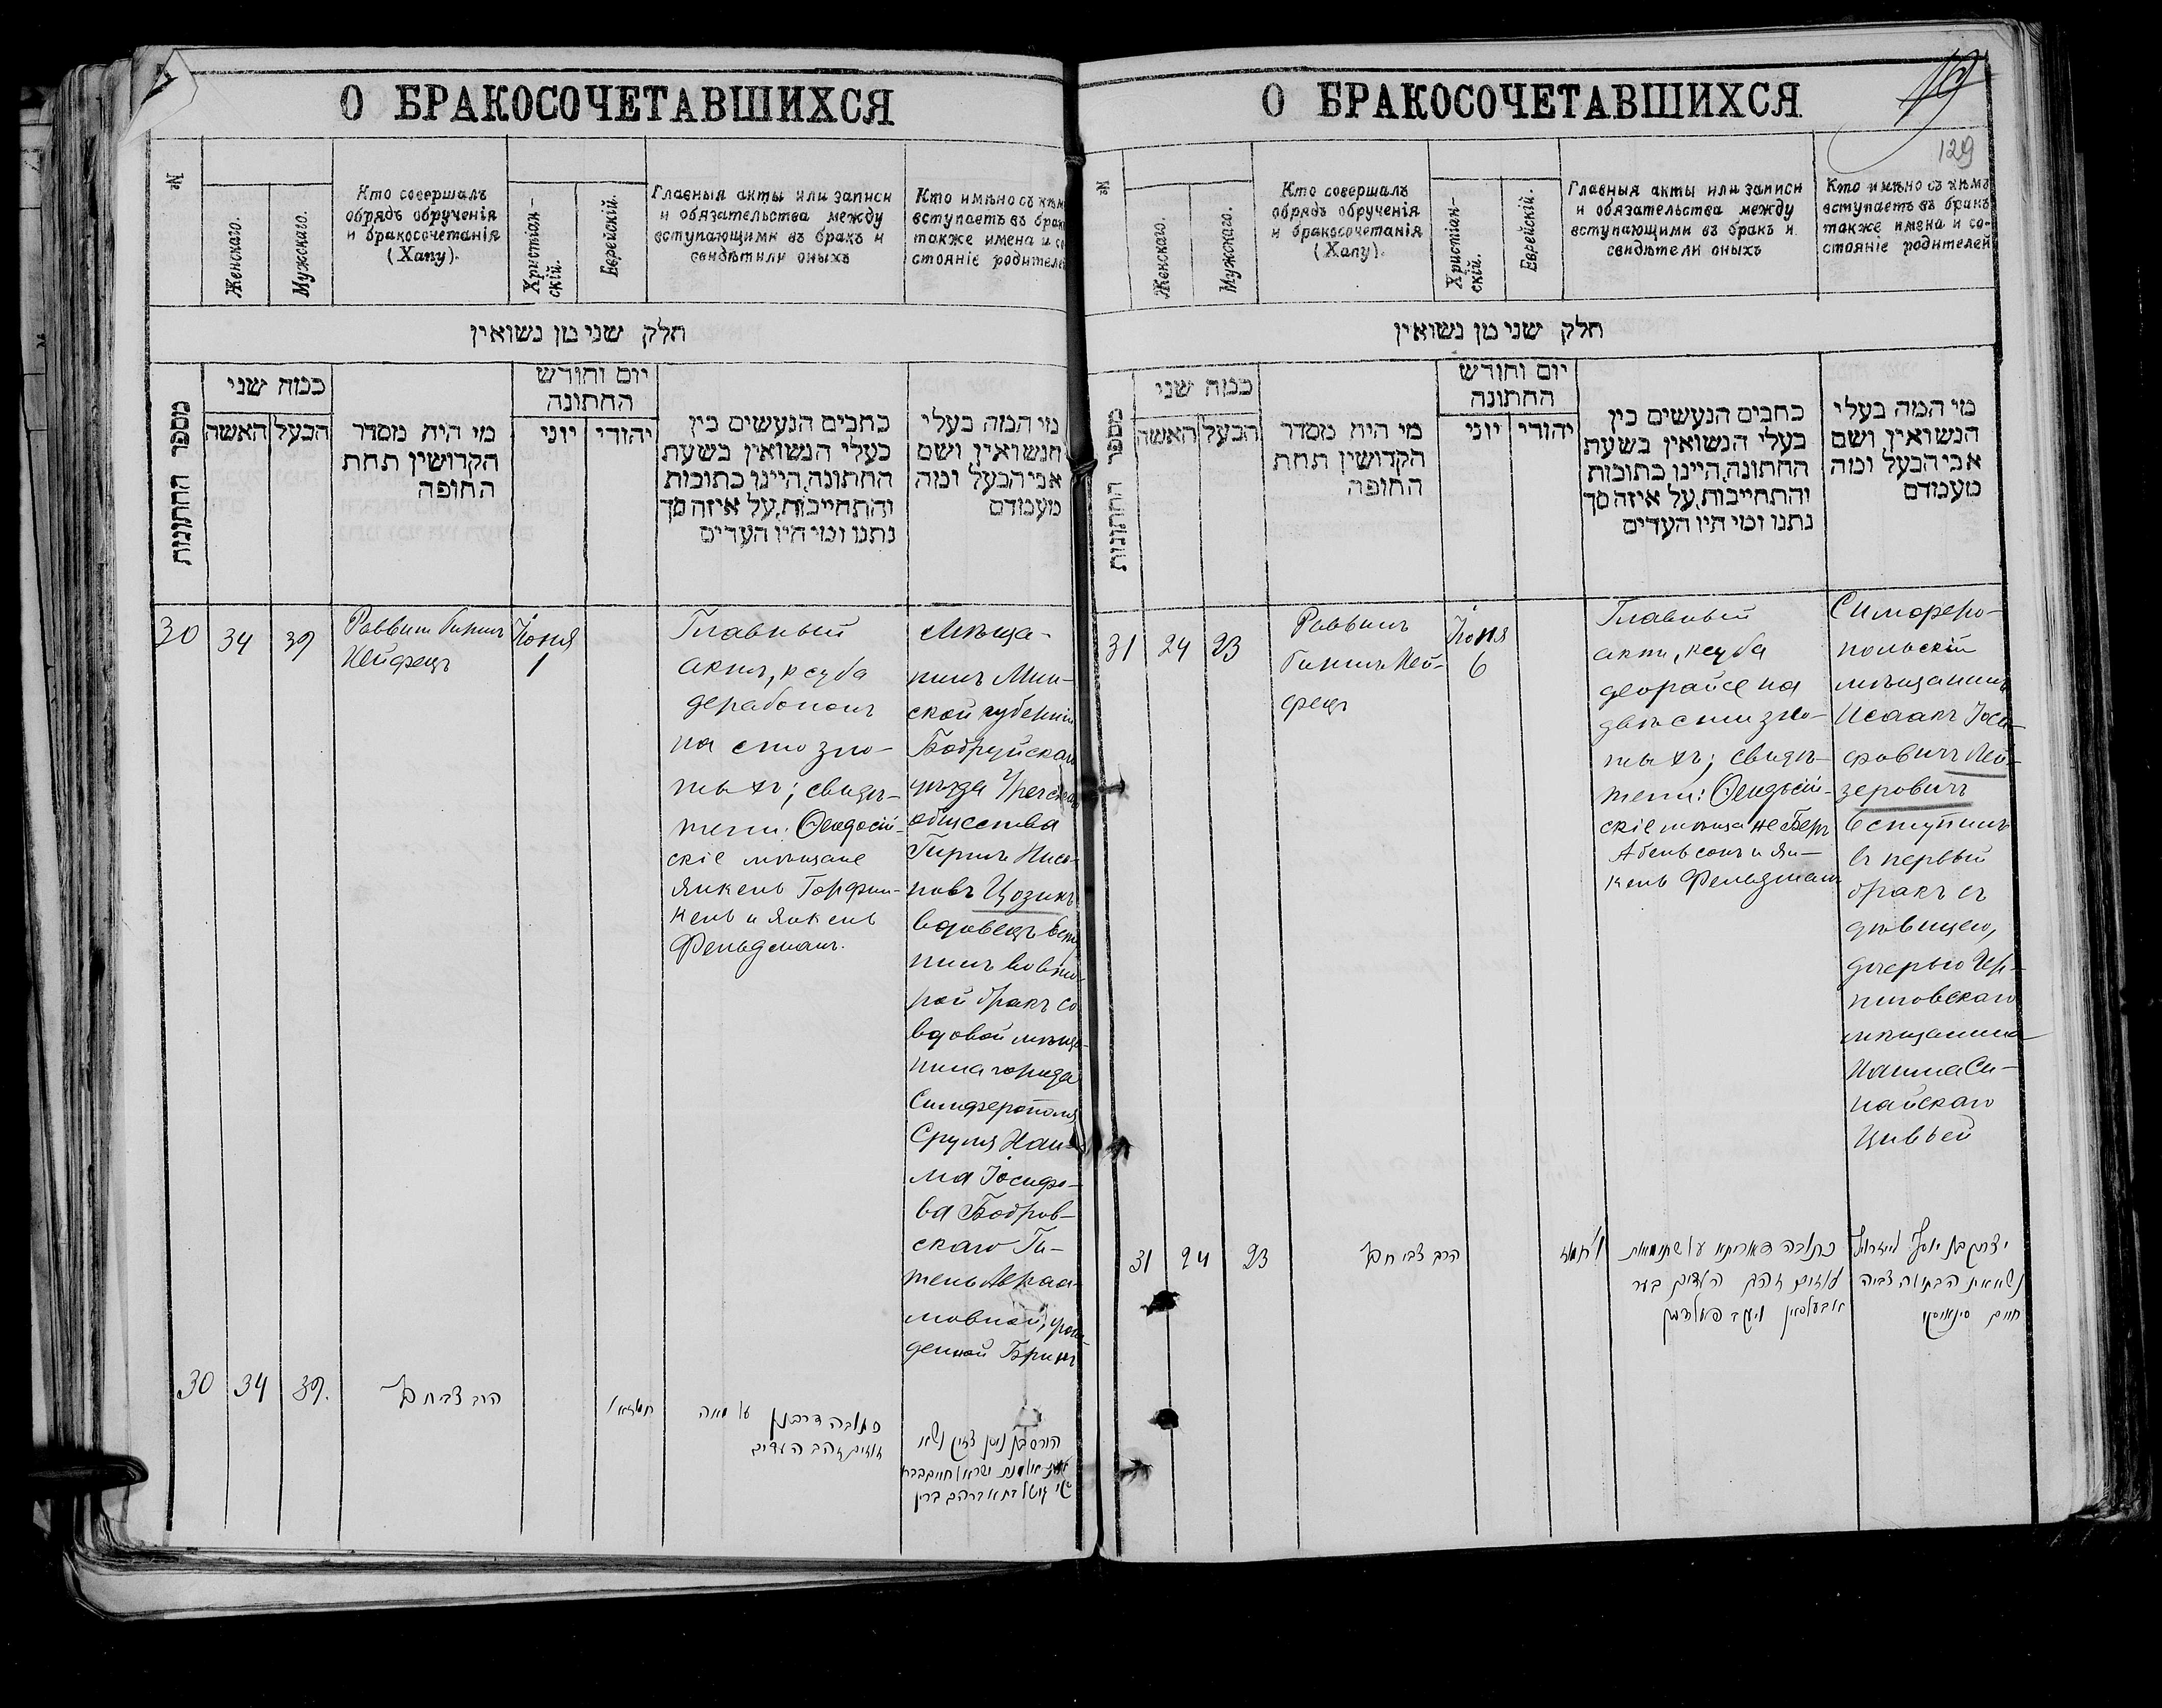 О БРАКОСОЧЕТАВШИХСЯ
№
Женскаго.
Мужскаго.
Кто совершалъ
обрядъ обрученія
и бракосочетанія
(Хапу).
Христіан-
скій.
Еврейскій.
Главныя акты или записи
и обязательства между
вступающими въ бракъ и
свидѣтили оныхъ
Кто имѣно съ кѣм
вступаетъ въ брак
также имена и со
стояніе родителей
חלק שני מן נשואין
מספר החתונות
כמה שני
האשה
הבעל
מי היה מסדר
הקדושין תחת
החופה
יום וחודש
החתונה
יוני
יהודי
כתבים הנעשים בין
בעלי הנשואין בשעת
החתונה, היינו כתובות
והתחייבות, על איזה סך
נתנו ומי היו העדים
מי המה בעלי
הנשואין ושם
אבי הבעל ומה
מעמדם
30
34
39
Раввинъ Гиршъ
Хейфецъ
Іюня
1
Главный
актъ, ксуба
дерабонон
на сто зло-
тыхъ; свидѣ-
тели: Ѳеодосій-
скіе мѣщане
Янкель Гарфин-
кель и Янкель
Фельдманъ.
Мѣща-
нинъ Мин-
ской губерніи
Бобруйскаго
уѣзда
общества
Гиршъ Нисо-
новъ Цозикъ
вдовецъ всту
пилъ во вто-
рой бракъ со
вдовой мѣща-
нина города
Симферополя
Сруля Хаи-
ма Іосифо-
ва Бобров-
скаго Ги-
тель Авраа-
мовной, урож-
денной Бринъ
30
34
39.
הרב צבי חפץ
כתובה דרבנן על מאה
זהובים העדים
О БРАКОСОЧЕТАВШИХСЯ
19
129
№
Женскаго.
Мужскаго.
Кто совершалъ
обрядъ обрученія
и бракосочетанія
(Хапу).
Христіан-
скій.
Еврейскій.
Главныя акты или записи
и обязательства между
вступающими въ бракъ и
свидѣтели оныхъ
Кто имѣно съ кѣмъ
вступаетъ въ бракъ
также имена и со-
стояніе родителей
חלק שני מן נשואין
מספר החתונות
כמה שני
האשה
הבעל
מי היה מסדר
הקדושין תחת
החופה
יום וחודש
החתונה
יוני
יהודי
כתבים הנעשים בין
בעלי הנשואין בשעת
החתונה, היינו כתובות
והתחייבות, על איזה סך
נתנו ומי היו העדים
מי המה בעלי
הנשואין ושם
אבי הבעל ומה
מעמדם
31
24
23
Раввинъ
Гиршъ Хей-
фецъ
Іюня
6
Главный
актъ, ксуба
деорайсе на
двѣсти зло-
тыхъ; свидѣ-
тели: Ѳеодосій-
скіе мѣщане Беръ
Абельсонъ и Ян-
кель Фельдманъ
Симферо-
польскій
мѣщанинъ
Исаакъ Іоси-
фовичъ Лей-
зеровичъ
вступилъ
въ первый
бракъ съ
дѣвицею,
дочерью
мѣщанина
Хаима Си-
найскаго
Цивьей
31
24
23
הרב צבי חפץ